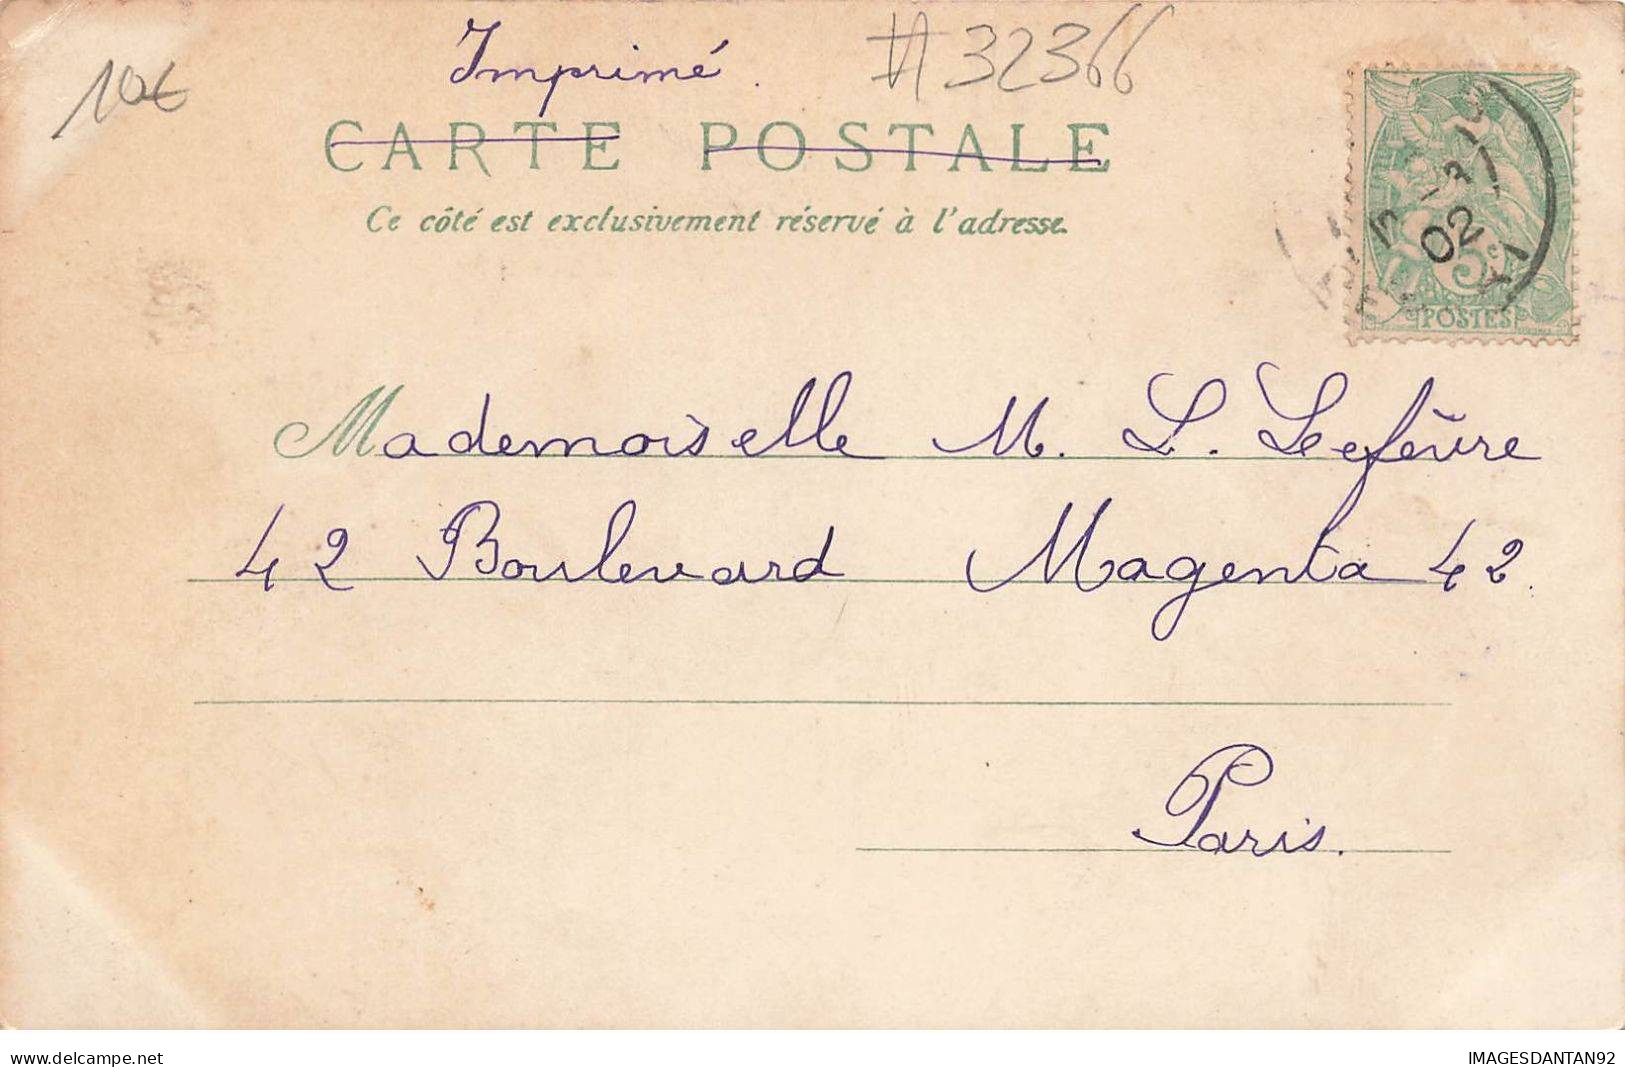 10€
Imprimé.
#32366
CARTE POSTALE
Ce côté est exclusivement réservé à l'adresse.
02
5c
POSTES
Mademoiselle M. L. Lefèvre
42 Boulevard Magenta 42.
Paris.
delcampe.net
IMAGESDANTAN92